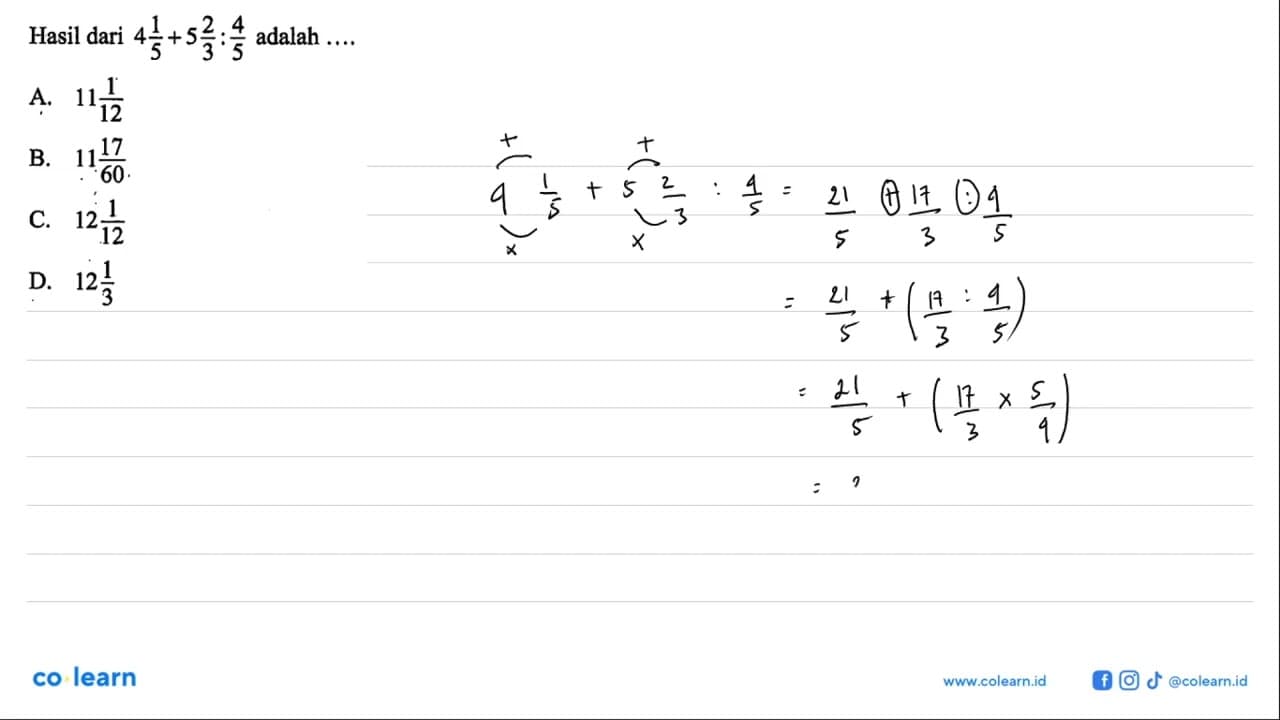 Hasil dari 4 1/5 + 5 2/3 : 4/5 adalah ....
A. 11 1/12
B. 11 17/60
C. 12 1/12
D. 12 1/3
+ +
4 1/5 + 5 2/3 : 4/5 = 21/5 + 17/3 : 4/5
x x
= 21/5 + (17/3 : 4/5)
= 21/5 + (17/3 x 5/4)
=
co learn
www.colearn.id @colearn.id